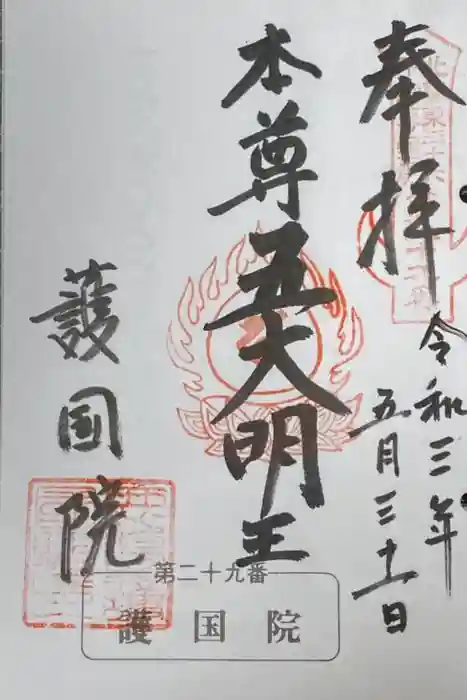 奉拝
令和三年
五月三十一日
本尊五大明王
護国院
第二十九番
護国院